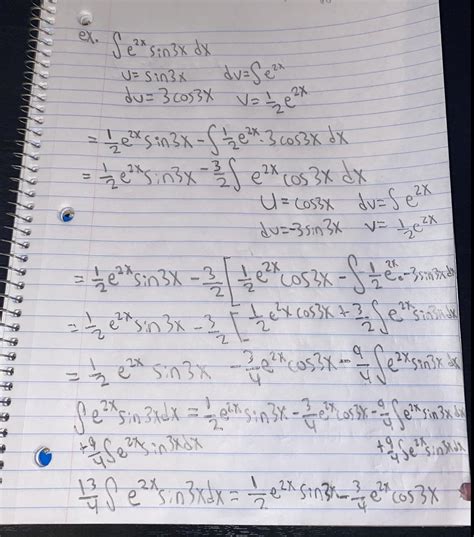 ex. ∫e^2x sin3x dx
u = sin3x dv = ∫e^2x
du = 3cos3x v = 1/2 e^2x
= 1/2 e^2x sin3x - ∫ 1/2 e^2x · 3cos3x dx
= 1/2 e^2x sin3x - 3/2 ∫ e^2x cos3x dx
u = cos3x dv = ∫e^2x
du = -3sin3x v = 1/2 e^2x
= 1/2 e^2x sin3x - 3/2 [ 1/2 e^2x cos3x - ∫ 1/2 e^2x · -3sin3x dx
= 1/2 e^2x sin3x - 3/2 [ 1/2 e^2x cos3x + 3/2 ∫e^2x sin3x dx
= 1/2 e^2x sin3x - 3/4 e^2x cos3x - 9/4 ∫e^2x sin3x dx
∫e^2x sin3x dx = 1/2 e^2x sin3x - 3/4 e^2x cos3x - 9/4 ∫e^2x sin3x dx
+ 9/4 ∫e^2x sin3x dx + 9/4 ∫e^2x sin3x dx
13/4 ∫ e^2x sin3x dx = 1/2 e^2x sin3x - 3/4 e^2x cos3x